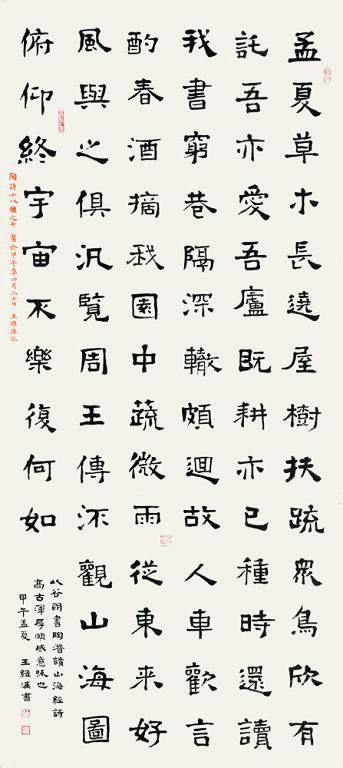 孟夏草木長遶屋樹扶疏衆鳥欣有
託吾亦愛吾廬既耕亦已種時還讀
我書窮巷隔深轍頗迴故人車歡言
酌春酒摘我園中蔬微雨從東來好
風與之俱汎覽周王傳流觀山海圖
俯仰終宇宙不樂復何如
書陶潛讀山海經詩
高古渾厚頗感意味也
甲午孟夏 王維漢書
陶詩十八種之十 書於甲午年四月二十七日 王維漢記